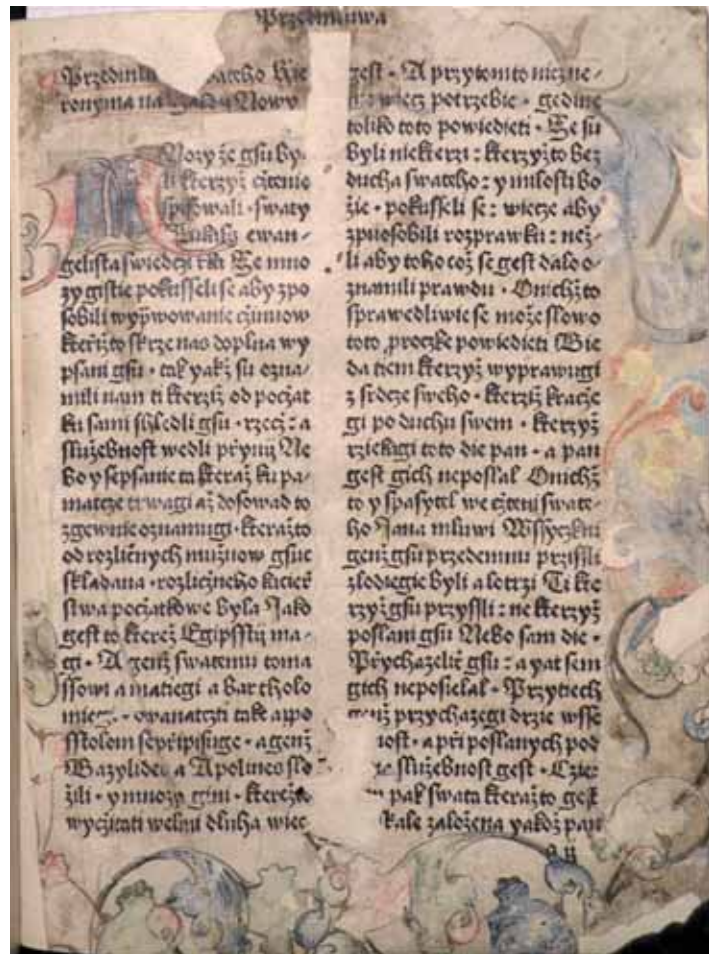 Przedmluwa
Przedmlu swateho Hie
ronyma na zakon Nowy
Nozy že gsu by-
li kterzyž cžtenie
spisowali · swaty
Lukass ewan-
gelista swiedczi rka Že mno
zy gistie pokusseli se aby zpo
sobili wyprwowanie cžinuow
kteržto skrze nas doplna wy
psani gsu · tak yakž su ozna-
mili nam ti kterziž od počat
ku sami sihledli gsu · rzecž : a
služebnost wedli prynij Ne
bo y sepsanie ta kteraž ku pa-
matcze trwagi až dosowad to
zgewnie oznamugi · kteražto
od rozličnych mužuow gsuc
skladana · rozličneho kacierz
stwa počatkowe byla Jako
gest to kterež Egipsstij ma-
gi · A genž swatemu toma
ssowi a matiegi a Bartholo
miegi · dwanatczti také appo
sstolom sepripisuge · a genž
Bazylides a Apolines slo
žili · y mnozy gini · kterežto
wyčitati welmi dluha wiec
gest · A przytomto niczne-
wiecz potrzebie · gedine
toliko toto powiedieti · Že su
byli niekterzi : kterzyžto bez
ducha swateho : y milosti bo
žie · pokusseli se : wiecze aby
zpuosobili rozprawku : než-
li aby toho což se gest dalo o-
znamili prawdu · Onichžto
sprawedliwie se može slowo
toto prorocke powiedieti Bie
da tiem kterzyž wyprawugi
z srdcze sweho · kterziž kracze
gi po duchu swem · kterzyž
rziekagi toto die pan · a pan
gest gich neposlal Onichž
to y spasytel we cžteni swate-
ho Jana mluwi Wssyczkni
genž gsu przedemnu przissli
zlodiegie byli a lotrzi Ti kte
rzyž gsu przyssli : ne kterzyž
poslani gsu Nebo sam die ·
Prychazeliť gsu : a yat sem
gich neposielal · Przytiech
genž przychazegi drzie wsse
nost · a pri poslanych pod
služebnost gest · Czier
pak swata kteražto gest
skale založena yakož pan
a ij